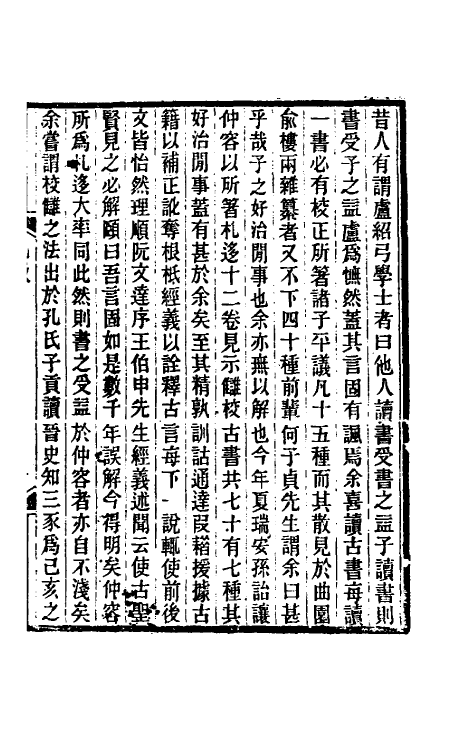 昔人有謂盧紹弓學士者曰他人讀書受書之益子讀書則
書受子之益盧爲憮然蓋其言固有諷焉余喜讀古書每讀
一書必有校正所著諸子平議凡十五種而其散見於曲園
兪樓兩雜纂者又不下四十種前輩何子貞先生謂余曰甚
乎哉子之好治閒事也余亦無以解也今年夏瑞安孫詒讓
仲容以所著札迻十二卷見示讎校古書共七十有七種其
好治閒事蓋有甚於余矣至其精孰訓詁通達叚藉援據古
籍以補正訛奪根柢經義以詮釋古言每下一說輒使前後
文皆怡然理順阮文達序王伯申先生經義述聞云使古聖
賢見之必解頤曰吾言固如是數千年誤解今得明矣仲容
所爲札迻大率同此然則書之受益於仲容者亦自不淺矣
余嘗謂校讎之法出於孔氏子貢讀晉史知三豕爲己亥之